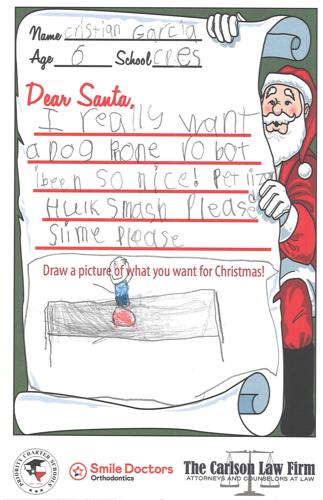 Name cristian Garcia
Age 6 School CPES
Dear Santa,
I really want
a Dog Bone robot
i been so nice! Pet
Hulk Smash Please
Slime Please
Draw a picture of what you want for Christmas!
PRIORITY CHARTER SCHOOLS
Smile Doctors
Orthodontics
The Carlson Law Firm
ATTORNEYS AND COUNSELORS AT LAW